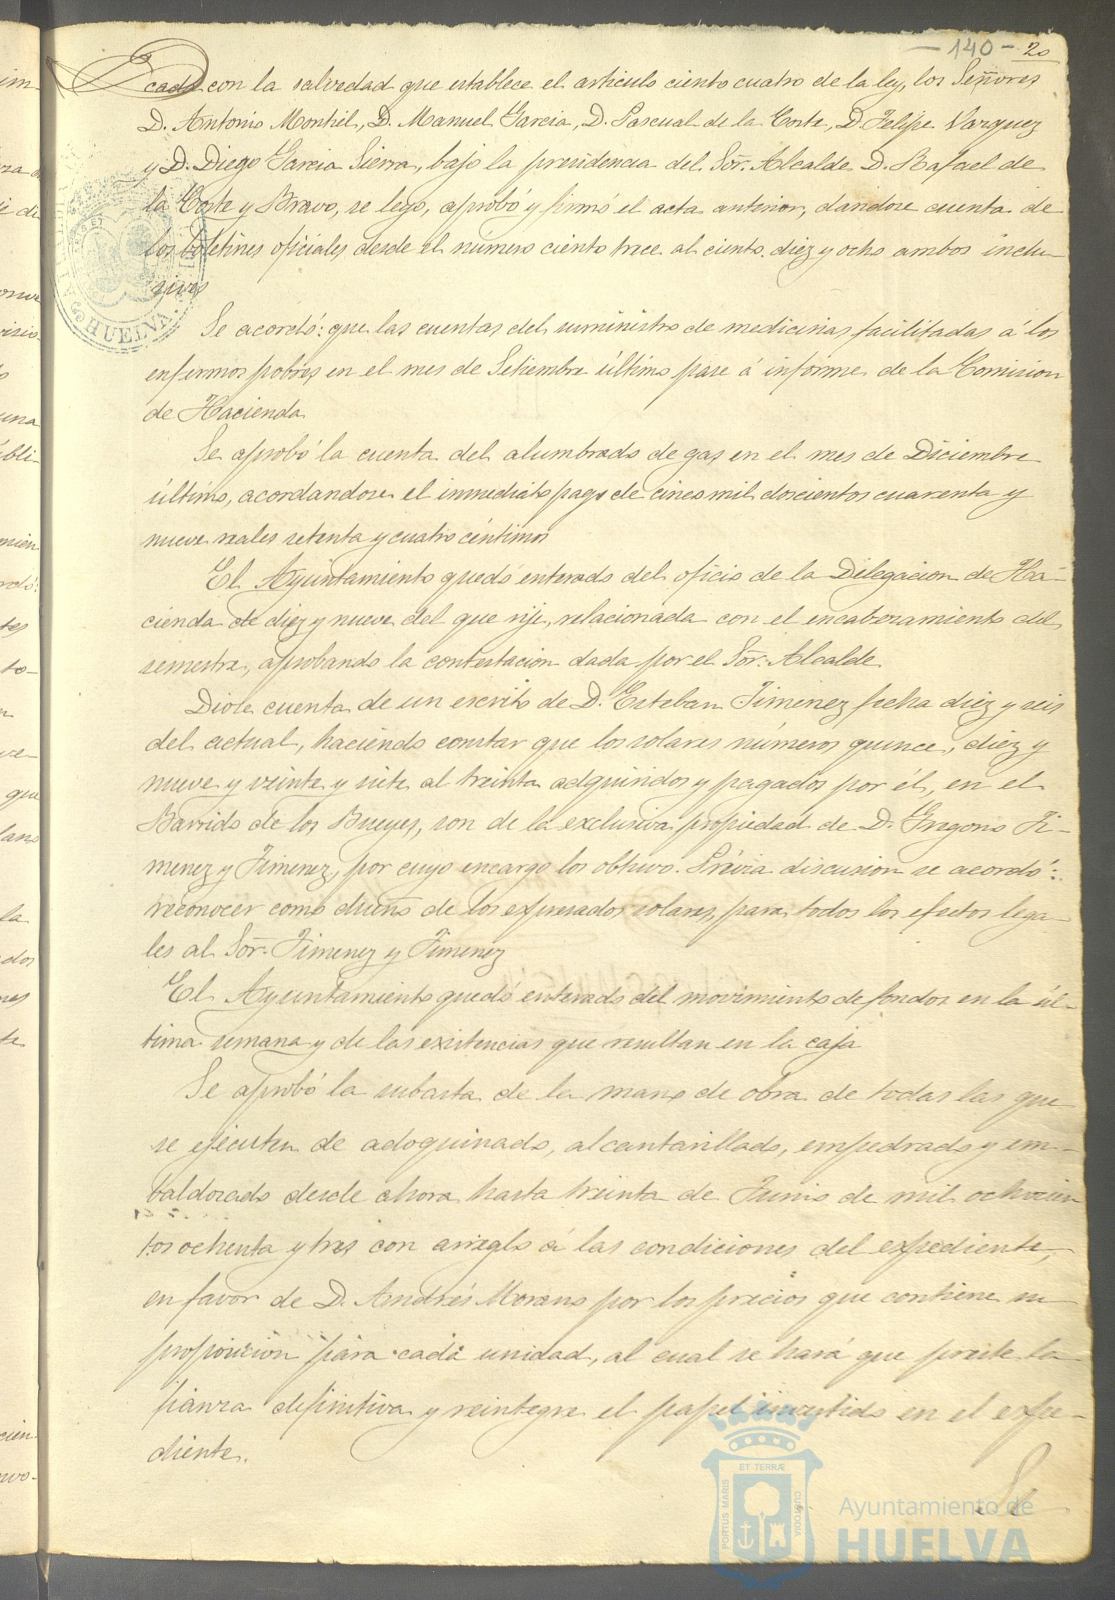 — 140 — 20
cada con la salvedad que establece el articulo ciento cuatro de la ley, los Señores
D. Antonio Montiel, D. Manuel Garcia, D. Pascual de la Corte, D. Felipe Vazquez
y D. Diego Garcia Sierra, bajo la presidencia del Sor. Alcalde D. Rafael de
la Corte y Bravo, se leyó, aprobó y firmó el acta anterior, dándose cuenta de
los boletines oficiales desde el número ciento trece al ciento diez y ocho ambos inclu-
sives
Se acordó: que las cuentas del suministro de medicinas facilitadas á los
enfermos pobres en el mes de Setiembre último pase á informe de la Comision
de Hacienda
Se aprobó la cuenta del alumbrado de gas en el mes de Diciembre
último, acordandose el inmediato pago de cinco mil doscientos cuarenta y
nueve reales setenta y cuatro céntimos
El Ayuntamiento quedó enterado del oficio de la Delegacion de Ha-
cienda de diez y nueve del que rije, relacionada con el encabezamiento del
semestre, aprobando la contestacion dada por el Sor. Alcalde.
Diose cuenta de un escrito de D. Esteban Jimenez fecha diez y seis
del actual, haciendo constar que los solares números quince, diez y
nueve y veinte y siete al treinta adquiridos y pagados por él, en el
Barrido de los Bueyes, son de la exclusiva propiedad de D. Gregorio Ji-
menez y Jimenez, por cuyo encargo los obtuvo. Prévia discusion se acordó:
reconocer como dueño de los expresados solares, para todos los efectos lega-
les al Sor. Jimenez y Jimenez
El Ayuntamiento quedó enterado del movimiento de fondos en la úl-
tima semana y de las existencias que resultan en la caja
Se aprobó la subasta de la mano de obra de todas las que
se ejecuten de adoquinado, alcantarillado, empedrado y em-
baldosado desde ahora hasta treinta de Junio de mil ochocien
tos ochenta y tres con arreglo á las condiciones del expediente,
en favor de D. Andrés Morano por los precios que contiene su
proposicion para cada unidad, al cual se hará que preste la
fianza definitiva y reintegre el papel invertido en el expe-
diente.
Se
HUELVA
PORTUS MARIS
ET TERRÆ
CUSTODIA
Ayuntamiento de
HUELVA